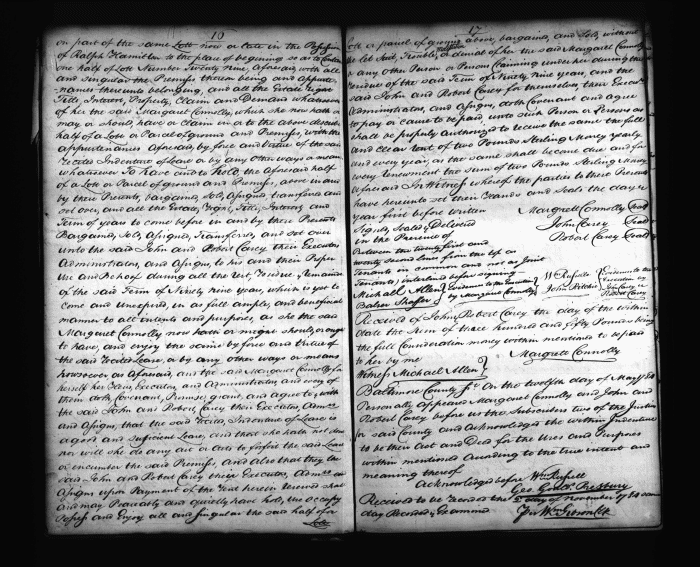 16
on part of the same Lott now or late in the Possession
of Ralph Hamilton to the place of beginning so as to Contain
one half of Lott Number Twenty nine, Aforesaid with all
and Singular the Premises thereon being and appurte
-nances thereunto belonging, and all the Estate, Right
Title, Interest, Property, Claim and Demand whatsoever
of her the said Margaret Connolly, which she now hath or
may or should have or Claim in or to the above described
half of a Lott or Parcel of ground and Premises, with the
appurtenances Aforesaid, by force and Virtue of the said
recited Indenture of Lease or by any other ways or means
whatsoever To have and to hold, the Aforesaid half
of a Lott or Parcel of ground and Premises, above in and
by these Presents, bargained, Sold, Assigned, transferred and
set over, and all the Estate, Right, Title, Interest, and
Term of years to come before in and by these Presents
Bargained, Sold, Assigned, Transferred, and set over
unto the said John and Robert Carey their Executors
Administrators, and Assigns, to his and their Proper
Use and Behoof during all the rest, residue & Remainder
of the said Term of Ninety nine years, which is yet to
Come and Unexpired, in as full ample, and beneficial
manner to all intents and purposes, as she the said
Margaret Connolly now hath or might should or ought
to have, and enjoy the same by force and Virtue of
the said recited Lease, or by any other ways or means
howsoever as Aforesaid, and the said Margaret Connolly for
herself her Heirs Executors, and Administrators and every of
them doth, Covenant, Promise, grant, and agree to, with
the said John and Robert Carey their Executors Admrs
and Assigns, that the said recited Indenture of Lease is
a good and Sufficient Lease, and that she hath not done
nor will she do any act or acts to forfeit the said Lease
or encumber the said Premises, And also that they the
said John and Robert Carey their Executors, Admrs and
Assigns upon Payment of the Rent herein reserved shall
and may Peaceably and quietly have hold, use occupy
Possess and Enjoy all and singular the said half of a
Lott
17
Lott or parcel of ground above, bargained, and Sold, without
the Let Suit, Trouble, or denial of her the said Margaret Connolly
or any other Person or Persons Claiming under her during the
residue of the said Term of Ninety nine years, and the
said John and Robert Carey for themselves their Executors
Administrators, and Assigns, doth Covenant and agree
to pay or cause to be paid, unto such Person or Persons as
shall be properly authorized to receive the same the full
and Clear Rent of two Pounds Sterling Money yearly
and every year, as the same shall become due and for
every renewment the Sum of two Pounds Sterling Money
Aforesaid In Witness whereof the parties to these Presents
have hereunto set their Hands and Seals the day &
year first before written Margrett Connolly Seal
Signed, Sealed, & Delivered John Carey Seal
in the Presence of Robert Carey Seal
Between the twenty first and
twenty second lines from the top as
Tenants in common and not as Joint
Tenants) interlined before signing
Michael Allen } Evidences to the Execution
Baker Shaffer } by Margaret Connolly
Wm Russell } Evidences to the
John Ritchie } Execution by
John Carey &
Robert Carey
Received of John & Robert Carey the day of the within
date the Sum of three hundred and fifty Pounds being
the full Consideration money within mentioned to be paid
to her by me
Margrett Connolly
Witness Michael Allen }
Baltimore County Sct On the twelfth day of May 1784
Personally appeared Margaret Connolly and John and
Robert Carey before us the Subscribers two of the Justices
for said County and Acknowledged the within Indenture
to be their Act and Deed for the Uses and Purposes
within mentioned According to the true intent and
meaning thereof
Acknowledged before Wm Russell
Geo Gouldh. Presbury
Received to be Record the day of November 1784 same
day Recorded & Examined
Wm Gibson Clk